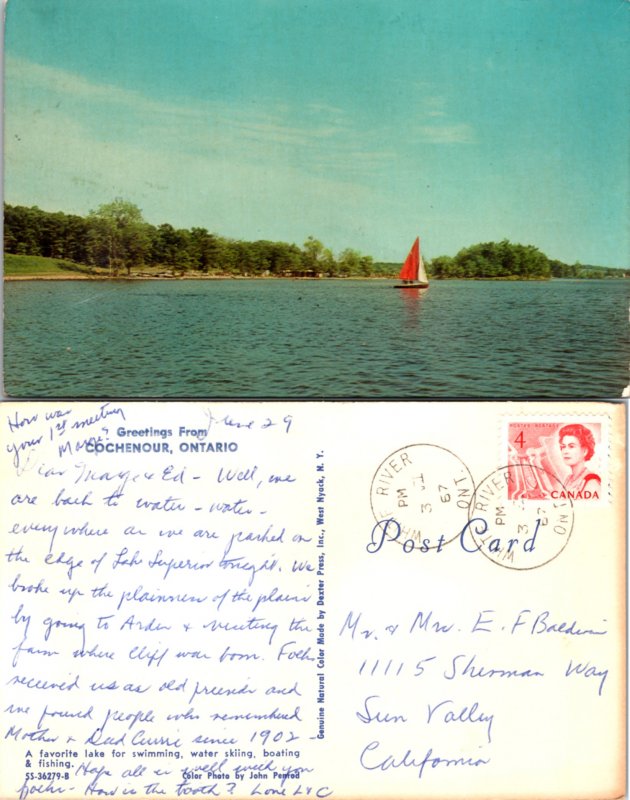 How was
your 1st meeting
Marge?
June 29
Greetings From
COCHENOUR, ONTARIO
Dear Marge & Ed - Well, we
are back to water - water -
everywhere as we are parked on
the edge of Lake Superior tonight. We
broke up the plainness of the plains
by going to Arden & visiting the
farm where Cliff was born. Folks
received us as old friends and
we found people who remembered
Mother & Dad Currie since 1902 -
A favorite lake for swimming, water skiing, boating
& fishing.
SS-36279-B
Color Photo by John Penrod
Hope all is well with you
folks - How is the tooth? Love L & C
Genuine Natural Color Made by Dexter Press, Inc., West Nyack, N. Y.
WHITE RIVER
PM
3 VI
67
ONT.
WHITE RIVER
PM
3
67
ONT
POSTES POSTAGE
4
CANADA
Post Card
Mr. & Mrs. E. F Baldwin
11115 Sherman Way
Sun Valley
California